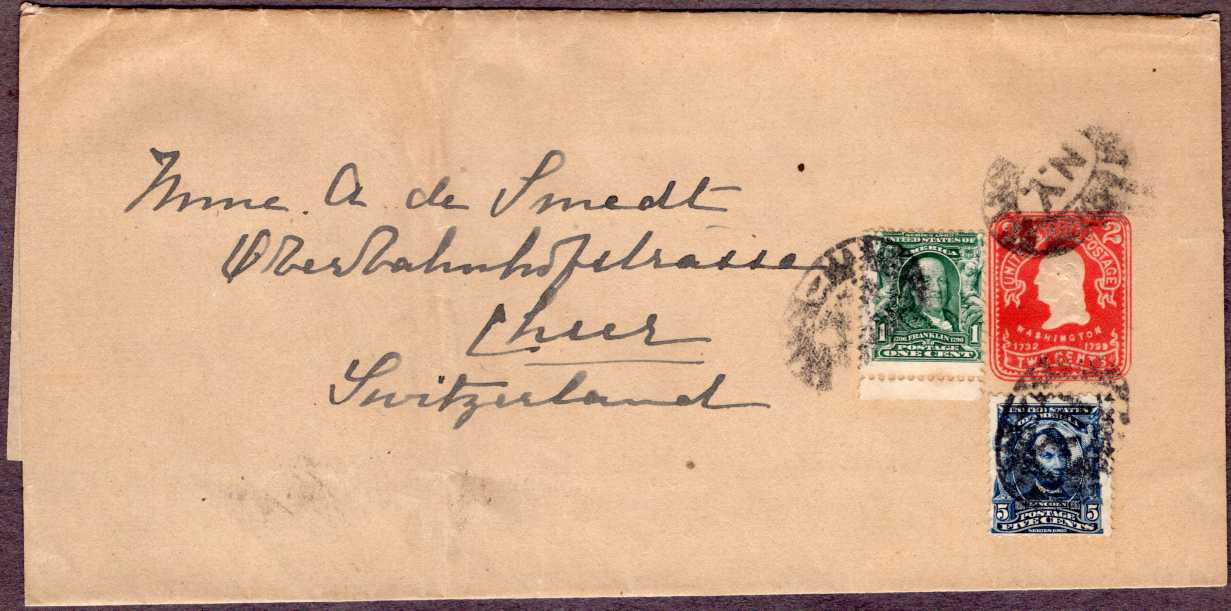 Mme. A de Smedt
Oberbahnhofstrasse
Cheer
Switzerland
N.Y.
SERIES 1902
UNITED STATES OF
AMERICA
1 1
1706 FRANKLIN 1790
POSTAGE
ONE CENT
2 2
UNITED STATES POSTAGE
WASHINGTON
1732 1799
TWO CENTS
UNITED STATES
OF AMERICA
LINCOLN
5 5
POSTAGE
FIVE CENTS
SERIES 1902